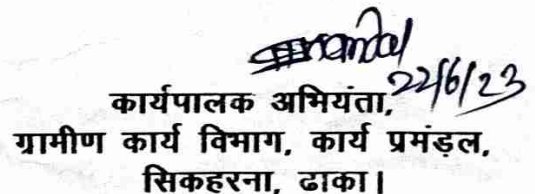 22/6/23
कार्यपालक अभियंता,
ग्रामीण कार्य विभाग, कार्य प्रमंड़ल,
सिकहरना, ढाका।